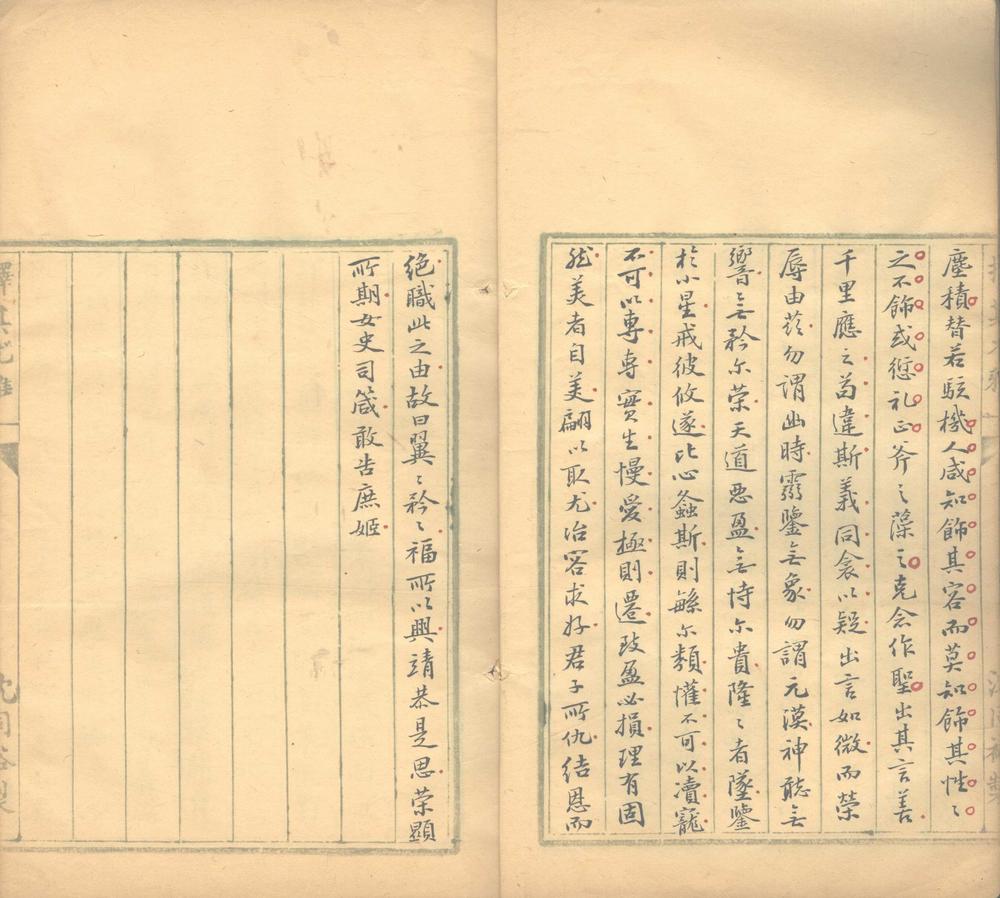 塵積替若駭機人咸知飾其容而莫知飾其性〻
之不飾或愆礼正斧之藻之克念作聖出其言善
千里應之苟違斯義同衾以疑出言如微而榮
辱由茲勿謂幽時靈鑒无象勿謂元漠神聽无
響无矜尔荣天道惡盈无恃尔貴隆〻者墜鑒
於小星戒彼攸遂比心螽斯則繇尔類懽不可以瀆寵
不可以專專實生慢愛極則遷致盈必損理有固
然美者自美翩以取尤冶容求好君子所仇結恩而
絶職此之由故曰翼〻矜〻福所以興靖恭是思荣顯
所期女史司箴敢告庶姬